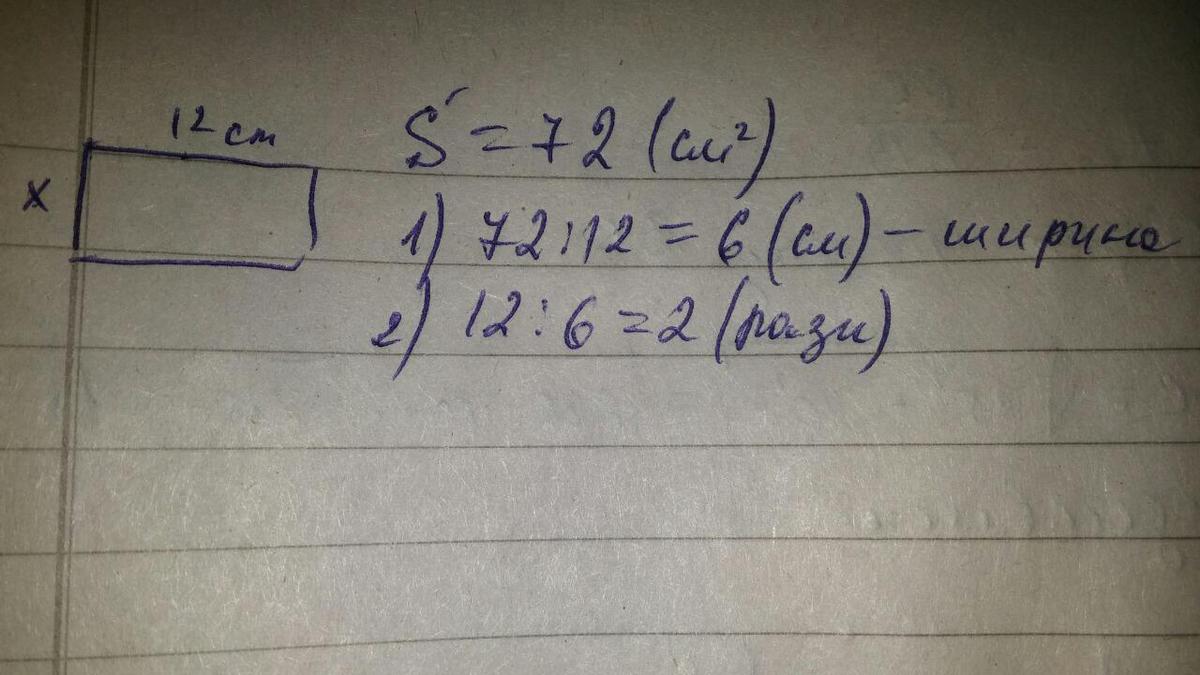 12 см
x
S = 72 (см²)
1) 72:12 = 6 (см) – ширина
2) 12:6 = 2 (рази)